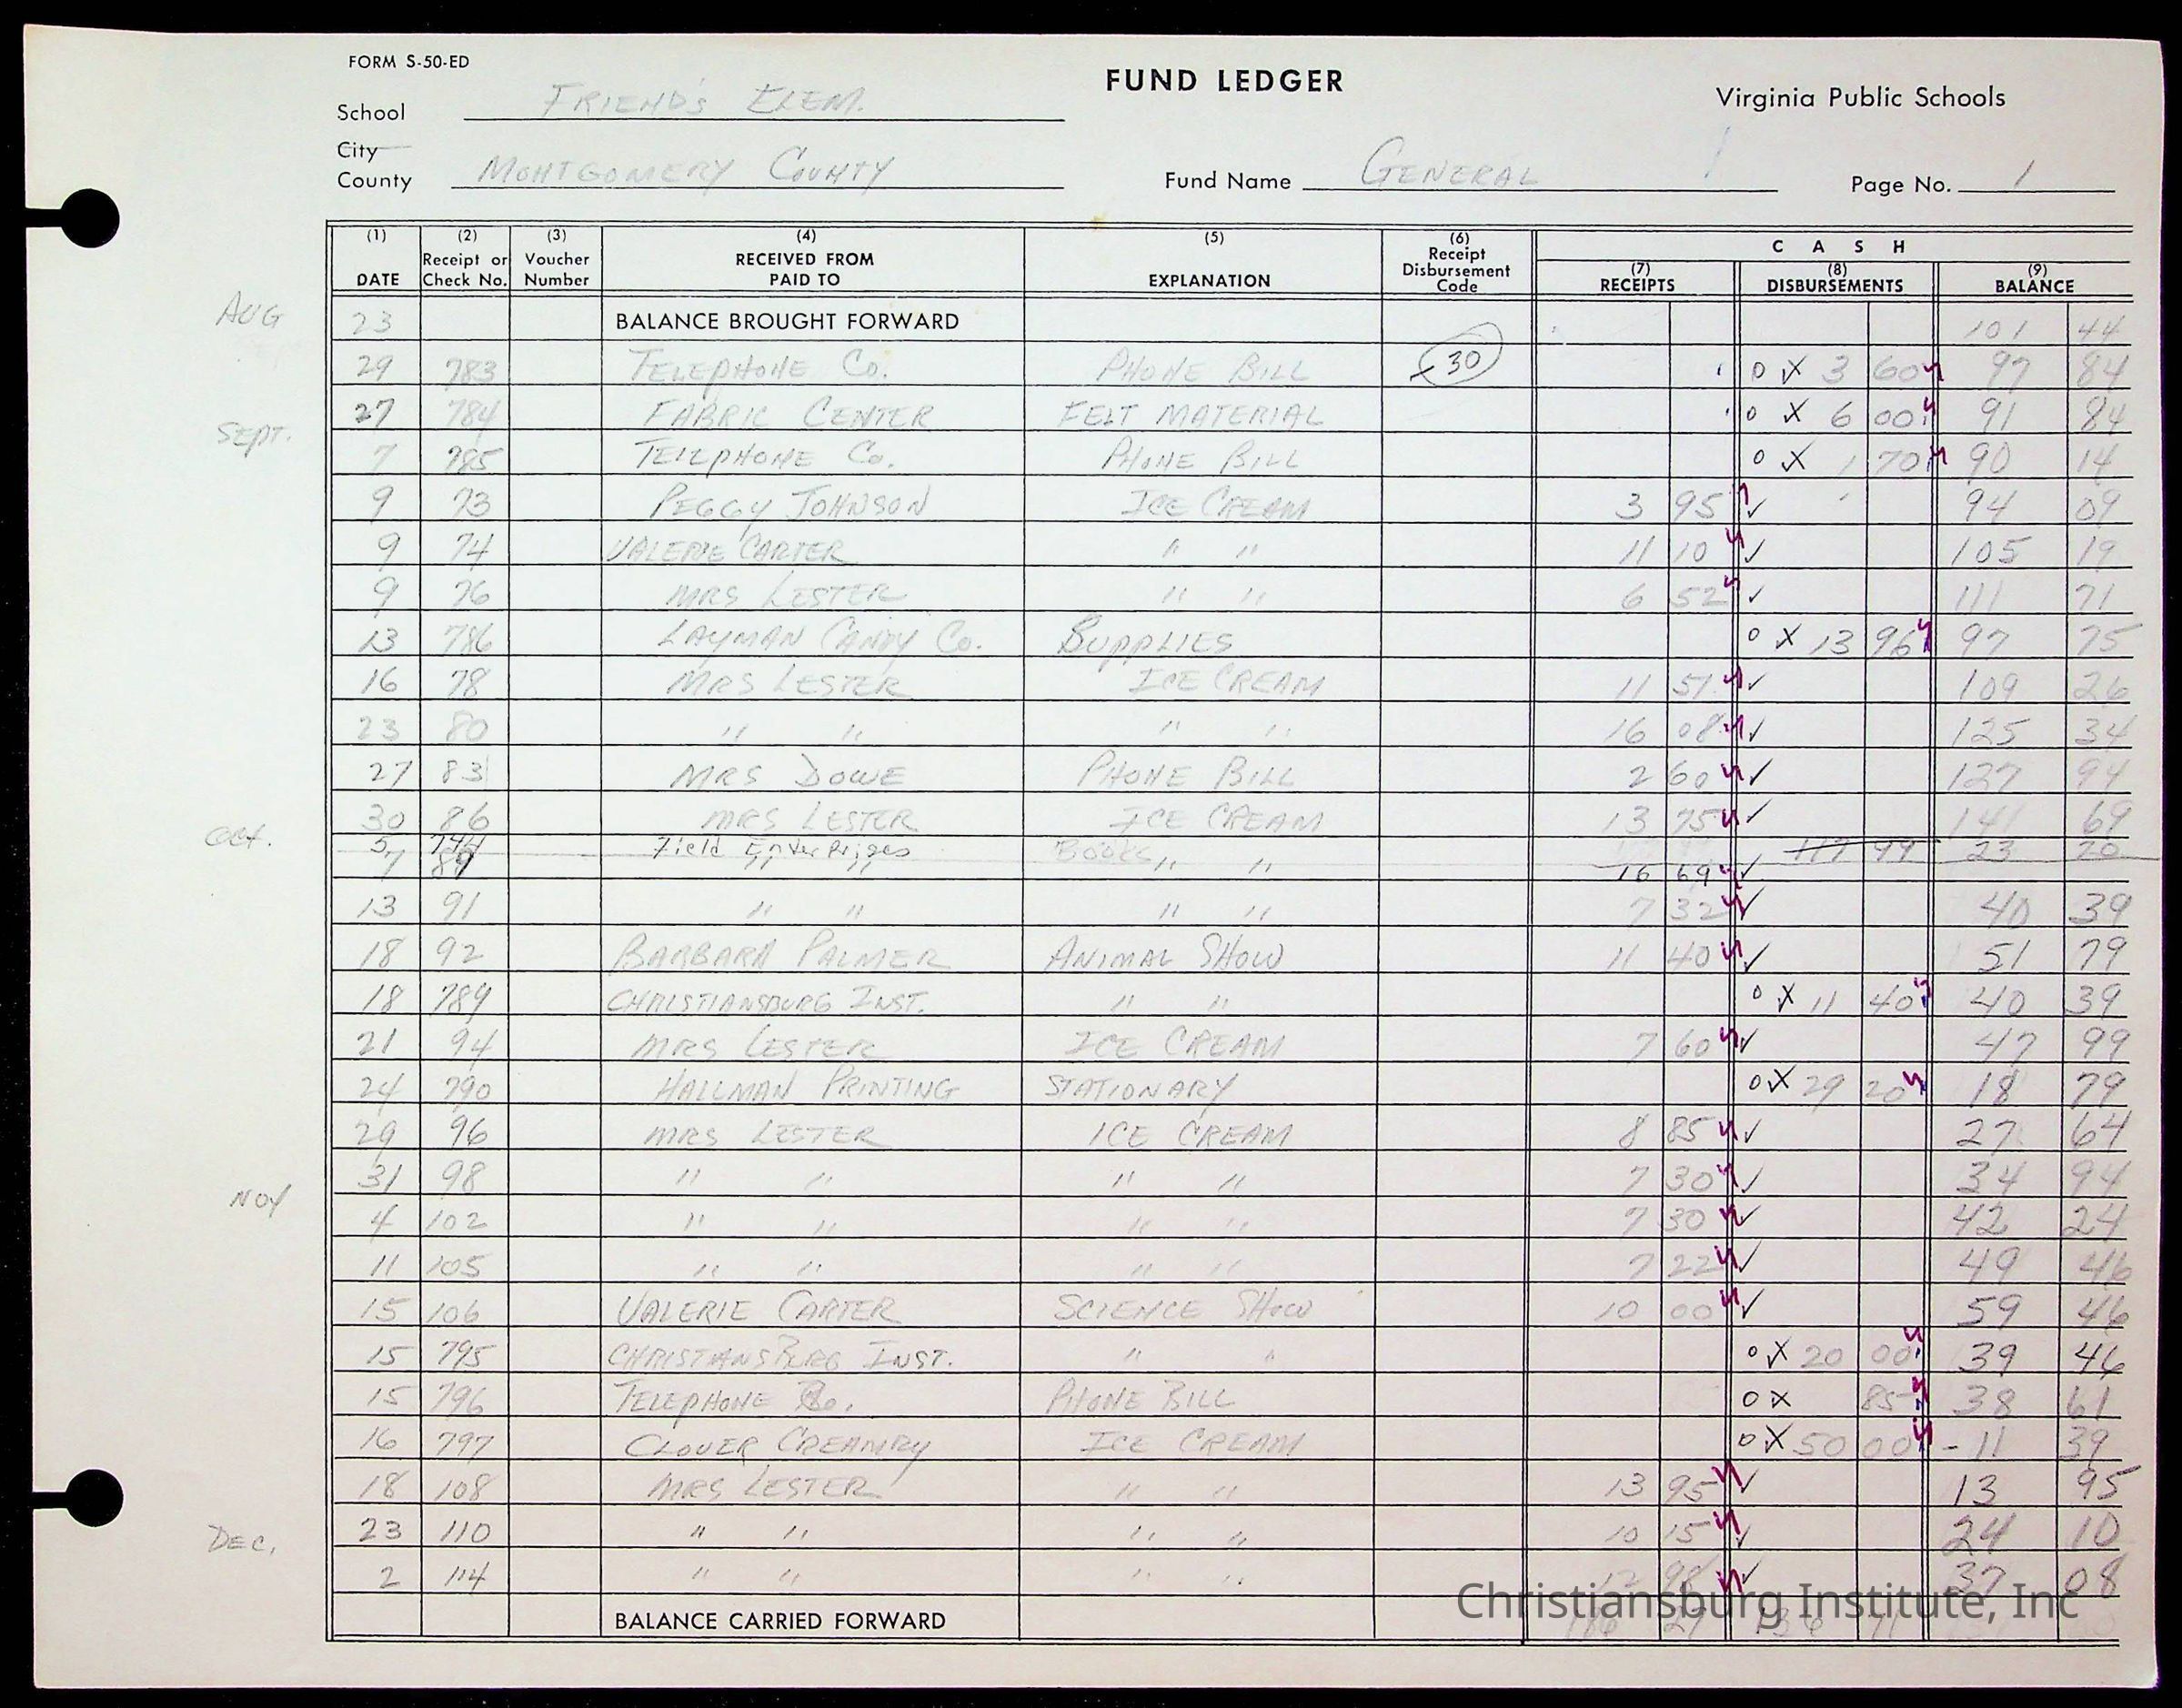 FORM S-50-ED
FUND LEDGER
Virginia Public Schools
School FRIEND'S ELEM.
City
County MONTGOMERY COUNTY
Fund Name GENERAL
Page No. 1
C A S H
(1) DATE (2) Receipt or Check No. (3) Voucher Number (4) RECEIVED FROM PAID TO (5) EXPLANATION (6) Receipt Disbursement Code (7) RECEIPTS (8) DISBURSEMENTS (9) BALANCE
AUG 23 BALANCE BROUGHT FORWARD 101 44
29 783 TELEPHONE Co. PHONE BILL 30 0 X 3 60 97 84
27 784 FABRIC CENTER FELT MATERIAL 0 X 6 00 91 84
SEPT. 7 785 TELEPHONE Co. PHONE BILL 0 X 1 70 90 14
9 73 PEGGY JOHNSON ICE CREAM 3 95 ✓ 94 09
9 74 VALERIE CARTER " " 11 10 ✓ 105 19
9 76 MRS LESTER " " 6 52 ✓ 111 71
13 786 LAYMAN CANDY Co. SUPPLIES 0 X 13 96 97 75
16 78 MRS LESTER ICE CREAM 11 51 ✓ 109 26
23 80 " " " " 16 08 ✓ 125 34
27 83 MRS DOWE PHONE BILL 2 60 ✓ 127 94
30 86 MRS LESTER ICE CREAM 13 75 ✓ 141 69
OCT. 5 744 Field Enterprizes BOOKS 117 99 23 70
7 89 " " " " 16 69 ✓
13 91 " " " " 7 32 ✓ 40 39
18 92 BARBARA PALMER ANIMAL SHOW 11 40 ✓ 51 79
18 789 CHRISTIANSBURG INST. " " 0 X 11 40 40 39
21 94 MRS LESTER ICE CREAM 7 60 ✓ 47 99
24 790 HALLMAN PRINTING STATIONARY 0 X 29 20 18 79
29 96 MRS LESTER ICE CREAM 8 85 ✓ 27 64
31 98 " " " " 7 30 ✓ 34 94
NOV 4 102 " " " " 7 30 ✓ 42 24
11 105 " " " " 7 22 ✓ 49 46
15 106 VALERIE CARTER SCIENCE SHOW 10 00 ✓ 59 46
15 795 CHRISTIANSBURG INST. " " 0 X 20 00 39 46
15 796 TELEPHONE Co. PHONE BILL 0 X 85 38 61
16 797 CLOVER CREAMRY ICE CREAM 0 X 50 00 - 11 39
18 108 MRS LESTER " " 13 95 ✓ 13 95
23 110 " " " " 10 15 ✓ 24 10
DEC. 2 114 " " " " 12 98 ✓ 37 08
BALANCE CARRIED FORWARD
Christiansburg Institute, Inc